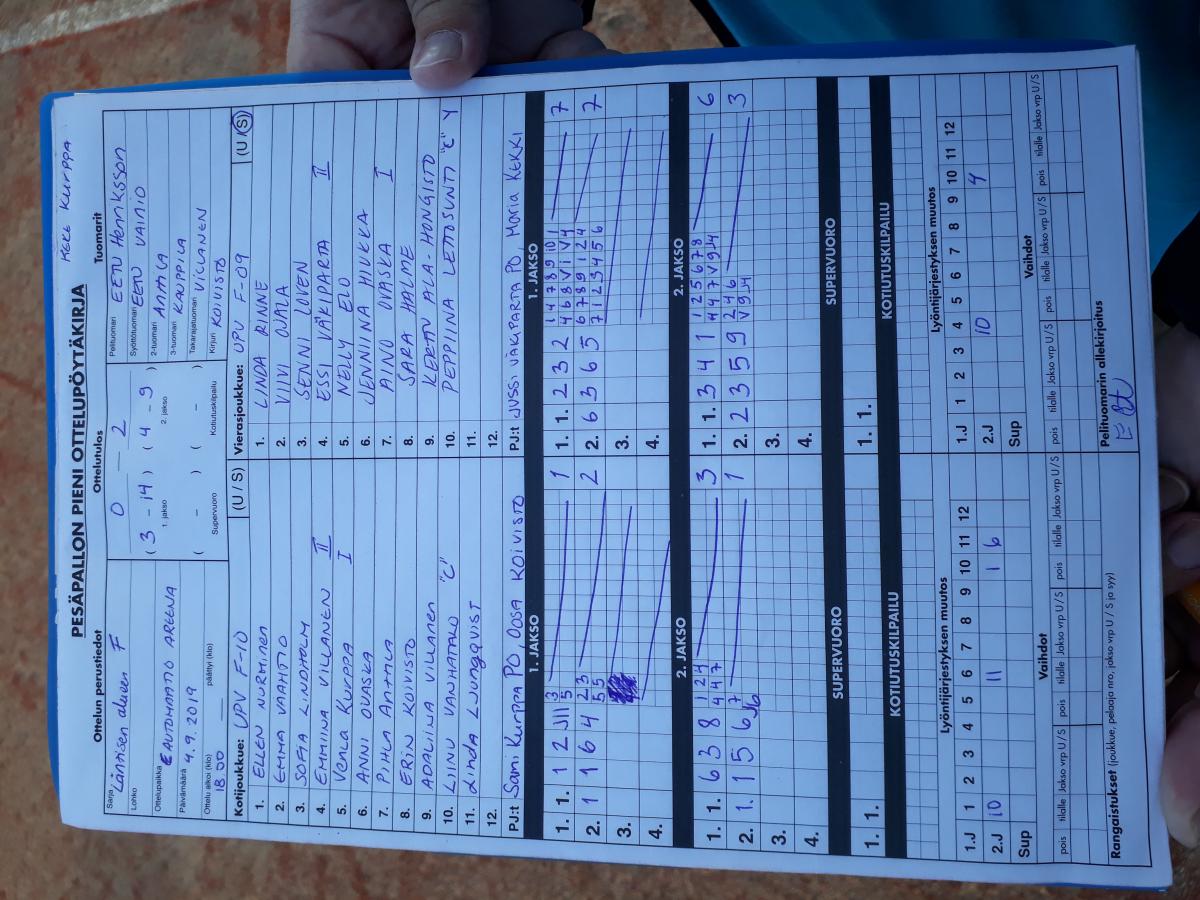 KEKE KURPPA
PESÄPALLON PIENI OTTELUPÖYTÄKIRJA
Ottelun perustiedot
Ottelutulos
Tuomarit
Sarja Läntisen alueen F
Lohko
Ottelupaikka AUTOMAATIO AREENA
Päivämäärä 4.9.2019
Ottelu alkoi (klo) 18.00 päättyi (klo)
0 — 2
( 3 - 14 ) ( 4 - 9 )
1. jakso 2. jakso
( - ) ( - )
Supervuoro Kotiutuskilpailu
Pelituomari EETU Henriksson
Syöttötuomari EETU VAINIO
2-tuomari Anttila
3-tuomari KAUPPILA
Takarajatuomari VILLANEN
Kirjuri KOIVISTO
Kotijoukkue: UPV F-10 (U / S)
1. ELLEN NURMINEN
2. EMMA VAAHTIO
3. SOFIA LINDHOLM
4. EMMIINA VILLANEN II
5. Venla KURPPA I
6. ANNI OVASKA
7. PIHLA Anttila
8. ERIN KOIVISTO
9. ADALIINA VILLANEN
10. LIINU VANHATALO "C"
11. Linda Ljungqvist
12.
PJ:t Sami Kurppa PO, OOSA KOIVISTO
Vierasjoukkue: UPV F-09 (U / S)
1. LINDA RINNE
2. VIIVI OJALA
3. SENNI LOVEN
4. ESSI VÄKIPARTA II
5. NELLY ELO
6. JENNIINA HIUKKA
7. AINO OVASKA I
8. SARA HALME
9. KERTTU ALA-HONGISTO
10. PEPPIINA LEHTOSUNTI "C" Y
11.
12.
PJ:t JUSSI VÄKIPARTA PO MARIA KEKKI
1. JAKSO
1. 1. 1 2 J11 3 5 1
2. 1 1 6 4 2 3 5 5 2
3.
4.
1. JAKSO
1. 1. 2 3 2 1 4 7 8 9 10 1 7
4 6 8 V i V 4
2. 6 3 6 5 6 7 8 9 1 2 4 7
7 1 2 3 4 5 6
3.
4.
2. JAKSO
1. 1. 6 3 8 4 2 4 3
4 4 7
2. 1. 1 5 6 7 J6 1
3.
4.
2. JAKSO
1. 1. 3 4 1 1 2 5 6 7 8 6
4 4 7 V 9 J4
2. 2 3 5 9 2 4 6 3
V 9 J4
3.
4.
SUPERVUORO
1. 1.
SUPERVUORO
1. 1.
KOTIUTUSKILPAILU
KOTIUTUSKILPAILU
Lyöntijärjestyksen muutos
1.J 1 2 3 4 5 6 7 8 9 10 11 12
2.J 10 11 1 6
Sup
Lyöntijärjestyksen muutos
1.J 1 2 3 4 5 6 7 8 9 10 11 12
2.J 10 4
Sup
Vaihdot
pois tilalle Jakso vrp U/S pois tilalle Jakso vrp U/S pois tilalle Jakso vrp U/S
Vaihdot
pois tilalle Jakso vrp U/S pois tilalle Jakso vrp U/S pois tilalle Jakso vrp U/S
Rangaistukset (joukkue, pelaaja nro, jakso vrp U / S ja syy)
Pelituomarin allekirjoitus